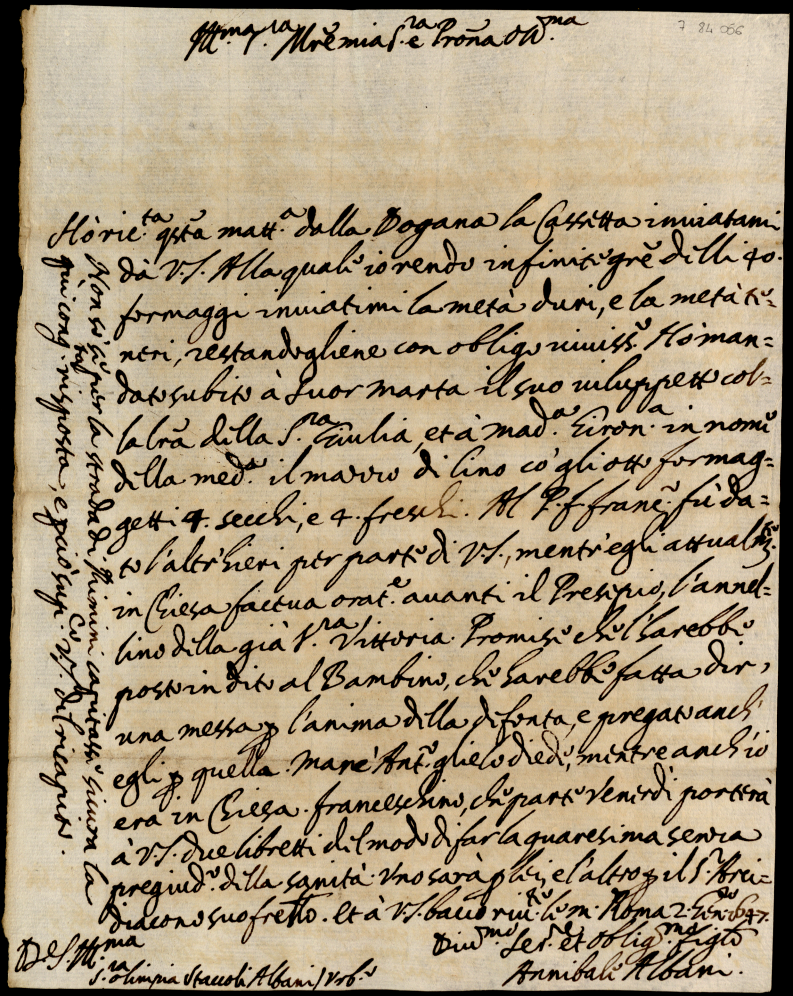 7 84 056
Ill.ma S.ra Mrē mia S.ra e Pronā Oss.ma
Hò ric.ta qstā matt.a dalla Dogana la Cassetta inviatami
dà V.S. Alla quale io rendo infinite grē delli 40.
formaggi inviatimi la metà duri, e la metà te=
neri, restandogliene con obligo viviss.o Hò man=
dato subito à Suor Marta il suo viluppetto col=
la lrā della S.ra Giulia, et à mad.a Giron.a in nome
della med.a il mazzo di lino co' gli otto formag=
getti 4. secchi, e 4. freschi. Al P. f. franc.o fù da=
to l'altr'hieri per parte di V.S., mentr'egli attualm.te
in Chiesa faceva orat.e avanti il Presepio, l'annel=
lino della già S.ra Vittoria. Promise che l'harebbe
posto in dito al Bambino, che harebbe fatta dir,
una messa p l'anima della difonta, e pregato anch'
egli p quella. Mane' Ant.o glielo diede, mentre anch'io
era in Chiesa. franceschino, che parte Venerdi porterà
à V.S. due libretti del modo di far la quaresima senza
pregiud.o della sanità. Uno sarà p lei, e l'altro p il S.r Arci=
diacono suo frello. Et à V.S. bacio riv.te le m. Roma 2. Gen.ro 1647.
Di V.S. Ill.ma
Div.mo Ser.re et oblig.mo figlo
S.ra Olimpia Staccoli Albani / Urb.o
Annibale Albani.
Non sò se per la strada di Rimini capitasse sicura la
qui cong.ta risposta, e però sup.co V.S. del ricapito.